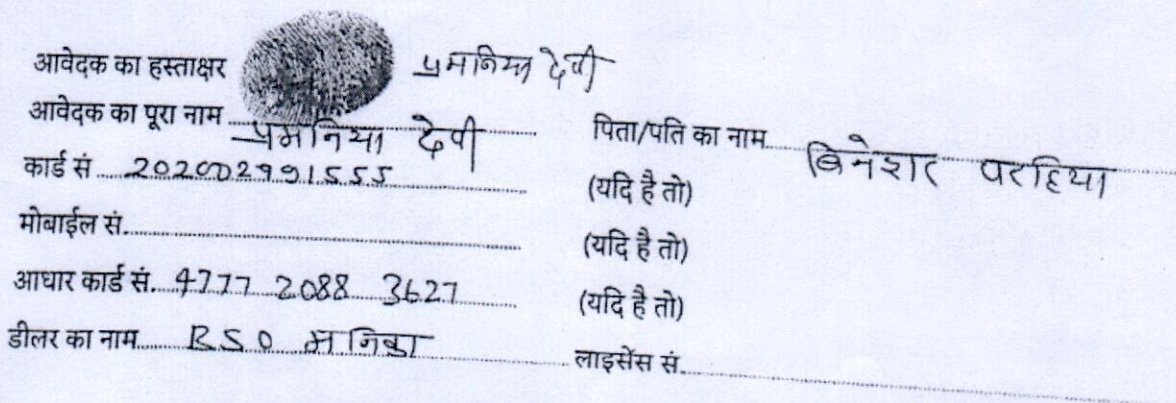 आवेदक का हस्ताक्षर प्रमनिया देवी
आवेदक का पूरा नाम प्रमनिया देवी पिता/पति का नाम बिनेशर परहिया
कार्ड सं 202002991555 (यदि है तो)
मोबाईल सं. (यदि है तो)
आधार कार्ड सं. 4777 2088 3627 (यदि है तो)
डीलर का नाम BSO मनिका लाइसेंस सं.